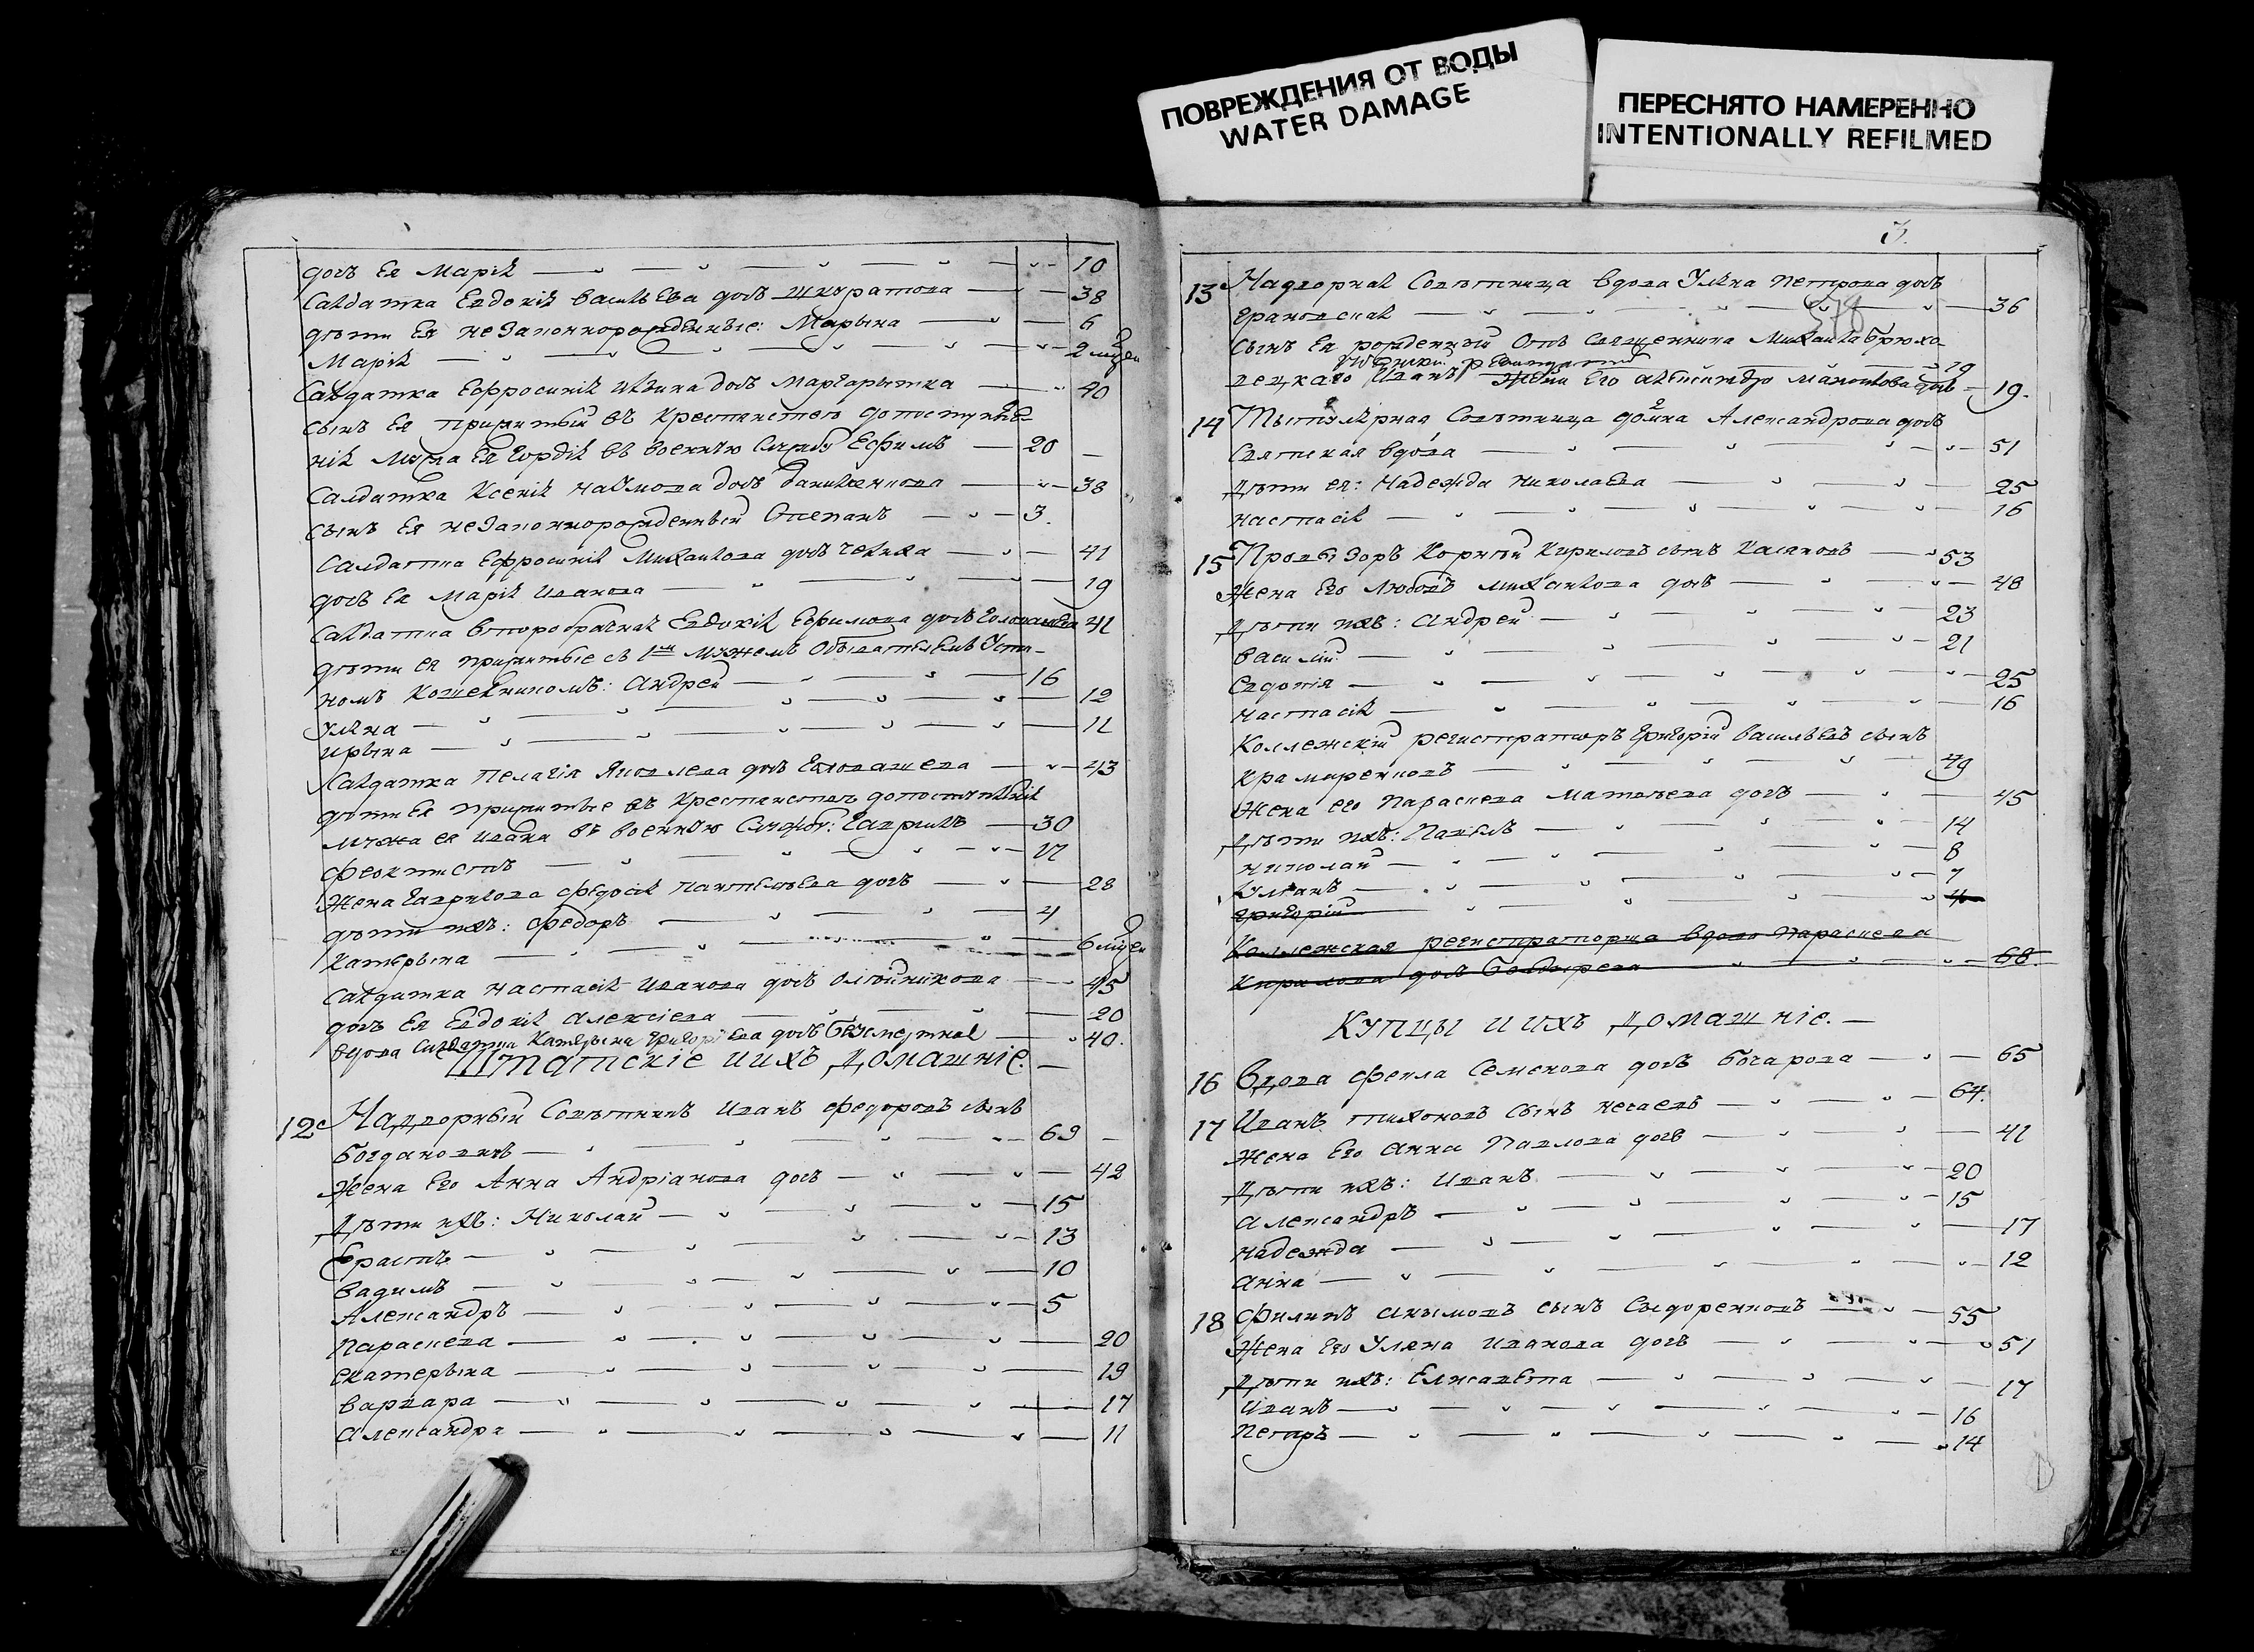 ПОВРЕЖДЕНИЯ ОТ ВОДЫ
WATER DAMAGE
ПЕРЕСНЯТО НАМЕРЕННО
INTENTIONALLY REFILMED
дочь Ея Марія 10
Салдатка Евдокія васильева дочь Шкуратова 38
дѣти Ея незаконнорожденные: Марына 6
Марія 2 мцей
Салдатка Ефросинія дочь Маргарытка 40
сынъ Ея прижитый въ Крестьянствѣ до поступлѣ-
нія Мужа Ея Гордія въ военную Службу Ефимъ 20
Салдатка Ксенія Наумова дочь Даниленкова 38
сынъ Ея незаконнорожденный Степанъ 3.
Салдатка Ефросинія Михайлова дочь 41
дочь Ея Марія Иванова 19
Салдатка второбрачная Евдокія Ефимова дочь 41
дѣти ея прижитые съ 1м Мужемъ Обывателемъ Усти-
номъ: Андрей 16
Уляна 12
Ирына 11
Салдатка Пелагія Яковлева дочь 43
дѣти Ея прижитые въ Крестьянствѣ до поступленія
мужа ея Ивана въ военную Службу: Гаврилъ 30
Феоктистъ 17
Жена Гаврилова Федосія Пантелѣева дочь 28
дѣти ихъ: Федоръ 4
Катерына 6 мцей
Салдатка Настасія Иванова дочь Олейникова 45
дочь Ея Евдокія Алексіева 20
вдова Салдатка Катерына Григоріева дочь Безсмертная 40.
Штатскіе и ихъ Домашніе.
12 Надворный Совѣтникъ Иванъ Федоровъ сынъ
Богдановичъ 69
Жена Его Анна Андріанова дочь 42
Дѣти ихъ: Николай 15
Ерастъ 13
Вадимъ 10
Александръ 5
Параскева 20
Екатерына 19
Варвара 17
Александра 11
3.
13 Надворная Совѣтница вдова Уляна Петрова дочь
36
Сынъ Ея рожденный Отъ Священника Михаила Брюхо-
вецкаго Иванъ 19
Жена Его Александра дочь 19.
14 Титулярная Совѣтница Александрова дочь
вдова 51
Дѣти ея: Надежда Николаева 25
Настасія 16
15 Провизоръ Корнѣй Кириловъ сынъ Касяновъ 53
Жена Его Любовь Михайлова дочь 48
Дѣти ихъ: Андрей 23
Василій 21
Евдокія 25
Настасія 16
Коллежскій регистраторъ Григорій Васильевъ сынъ
Крамаренковъ 49
Жена его Параскева Матвѣева дочь 45
Дѣти ихъ: Павелъ 14
Николай 8
Ульянъ 7
Григорій 4
Коллежская регистраторша вдова Параскева
Кирилова дочь Болдырева 68.
Купцы и ихъ домашніе.
16 Вдова Фекла Семенова дочь Бочарова 65
17 Иванъ Тихоновъ Сынъ Нечаевъ 64.
Жена Его Анна Павлова дочь 41
Дѣти ихъ: Иванъ 20
Александръ 15
Надежда 17
Анна 12
18 Филипъ Акымовъ сынъ Сыдоренковъ 55
Жена Его Уляна Иванова дочь 51
Дѣти ихъ: Елисавета 17
Иванъ 16
Петръ 14